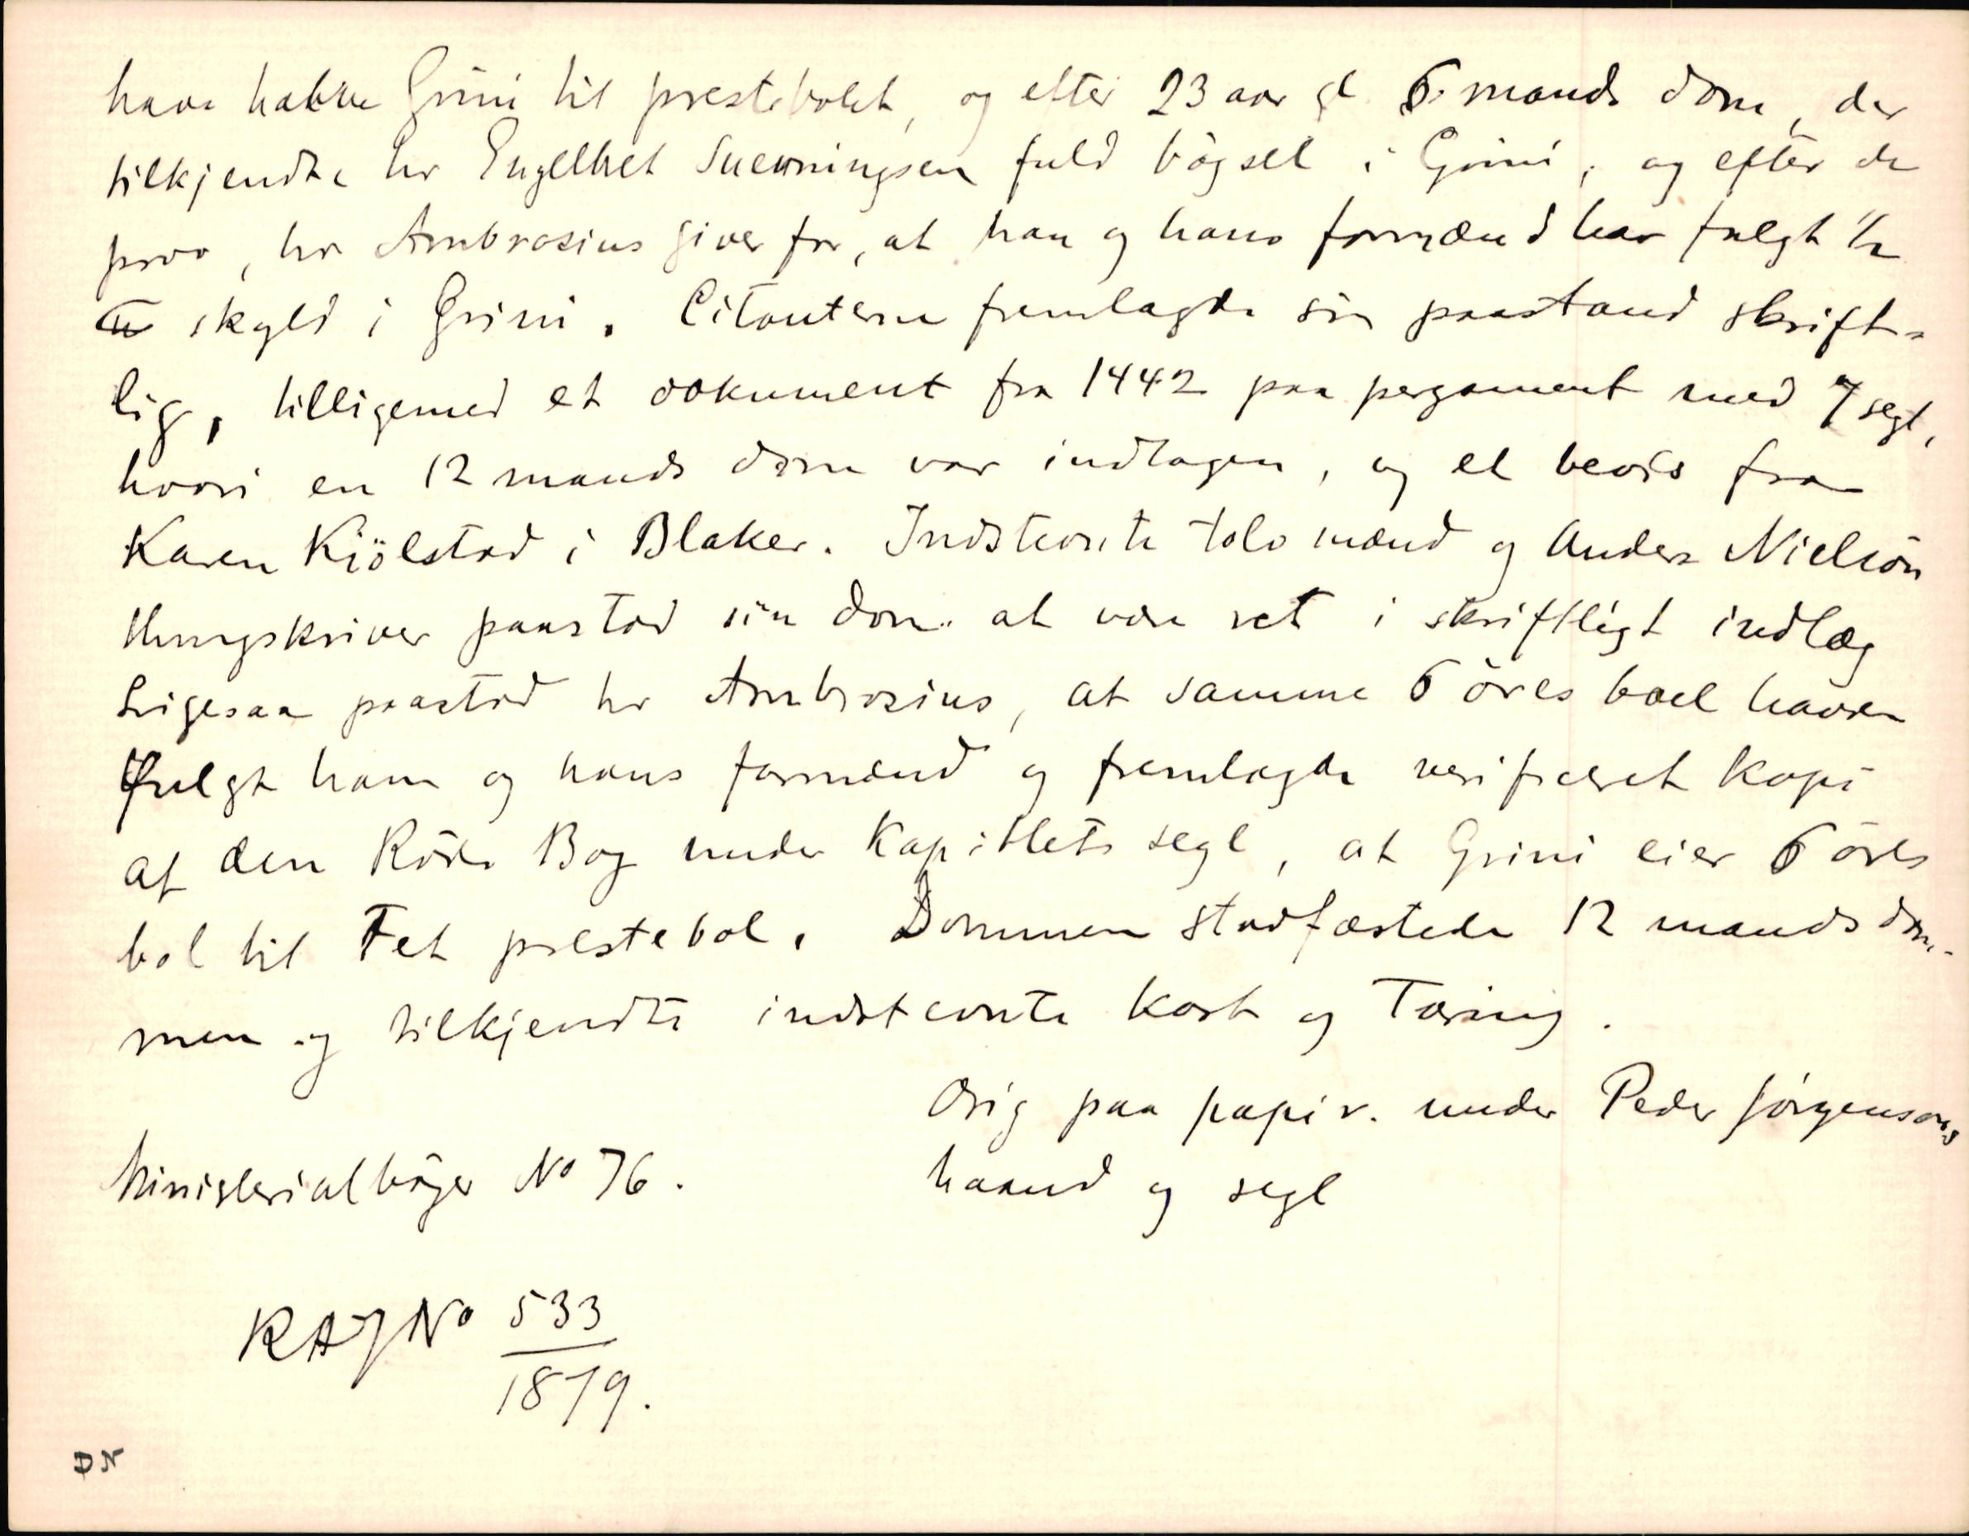 have havt Grini til prestebolet, og efter 23 aar gl. 6 mands dom, der
tilkjendte hr Engelbret Suenningsen fuld bögsel i Grini, og efter de
prov, hr Ambrosius giver for, at han og hans formænd har fulgt 1/2
skyld i Grini. Citanterne fremlagde sin paastand skrift-
lig, tilligemed et dokument fra 1442 paa pergament med 7 segl,
hvori en 12 mands dom var indtagen, og et bevis fra
Karen Kiölstad i Blaker. Indstevnte tolv mænd og Anders Nielsön
thingskriver paastod sin dom at være ret i skriftligt indlæg
Ligesaa paastod hr Ambrosius, at samme 6 öres boel havde
fulgt ham og hans formænd og fremlagde verificeret kopi
af den Röde Bog under Kapitlets segl, at Grini eier 6 öres
bol til Fet prestebol. Dommen stadfæstede 12 mands dom-
men og tilkjendte indstevnte kost og Tæring.
Orig paa papir. under Peder Jörgensöns
haand og segl
Ministerialböger No 76.
RAJNo 533
1879.
DN